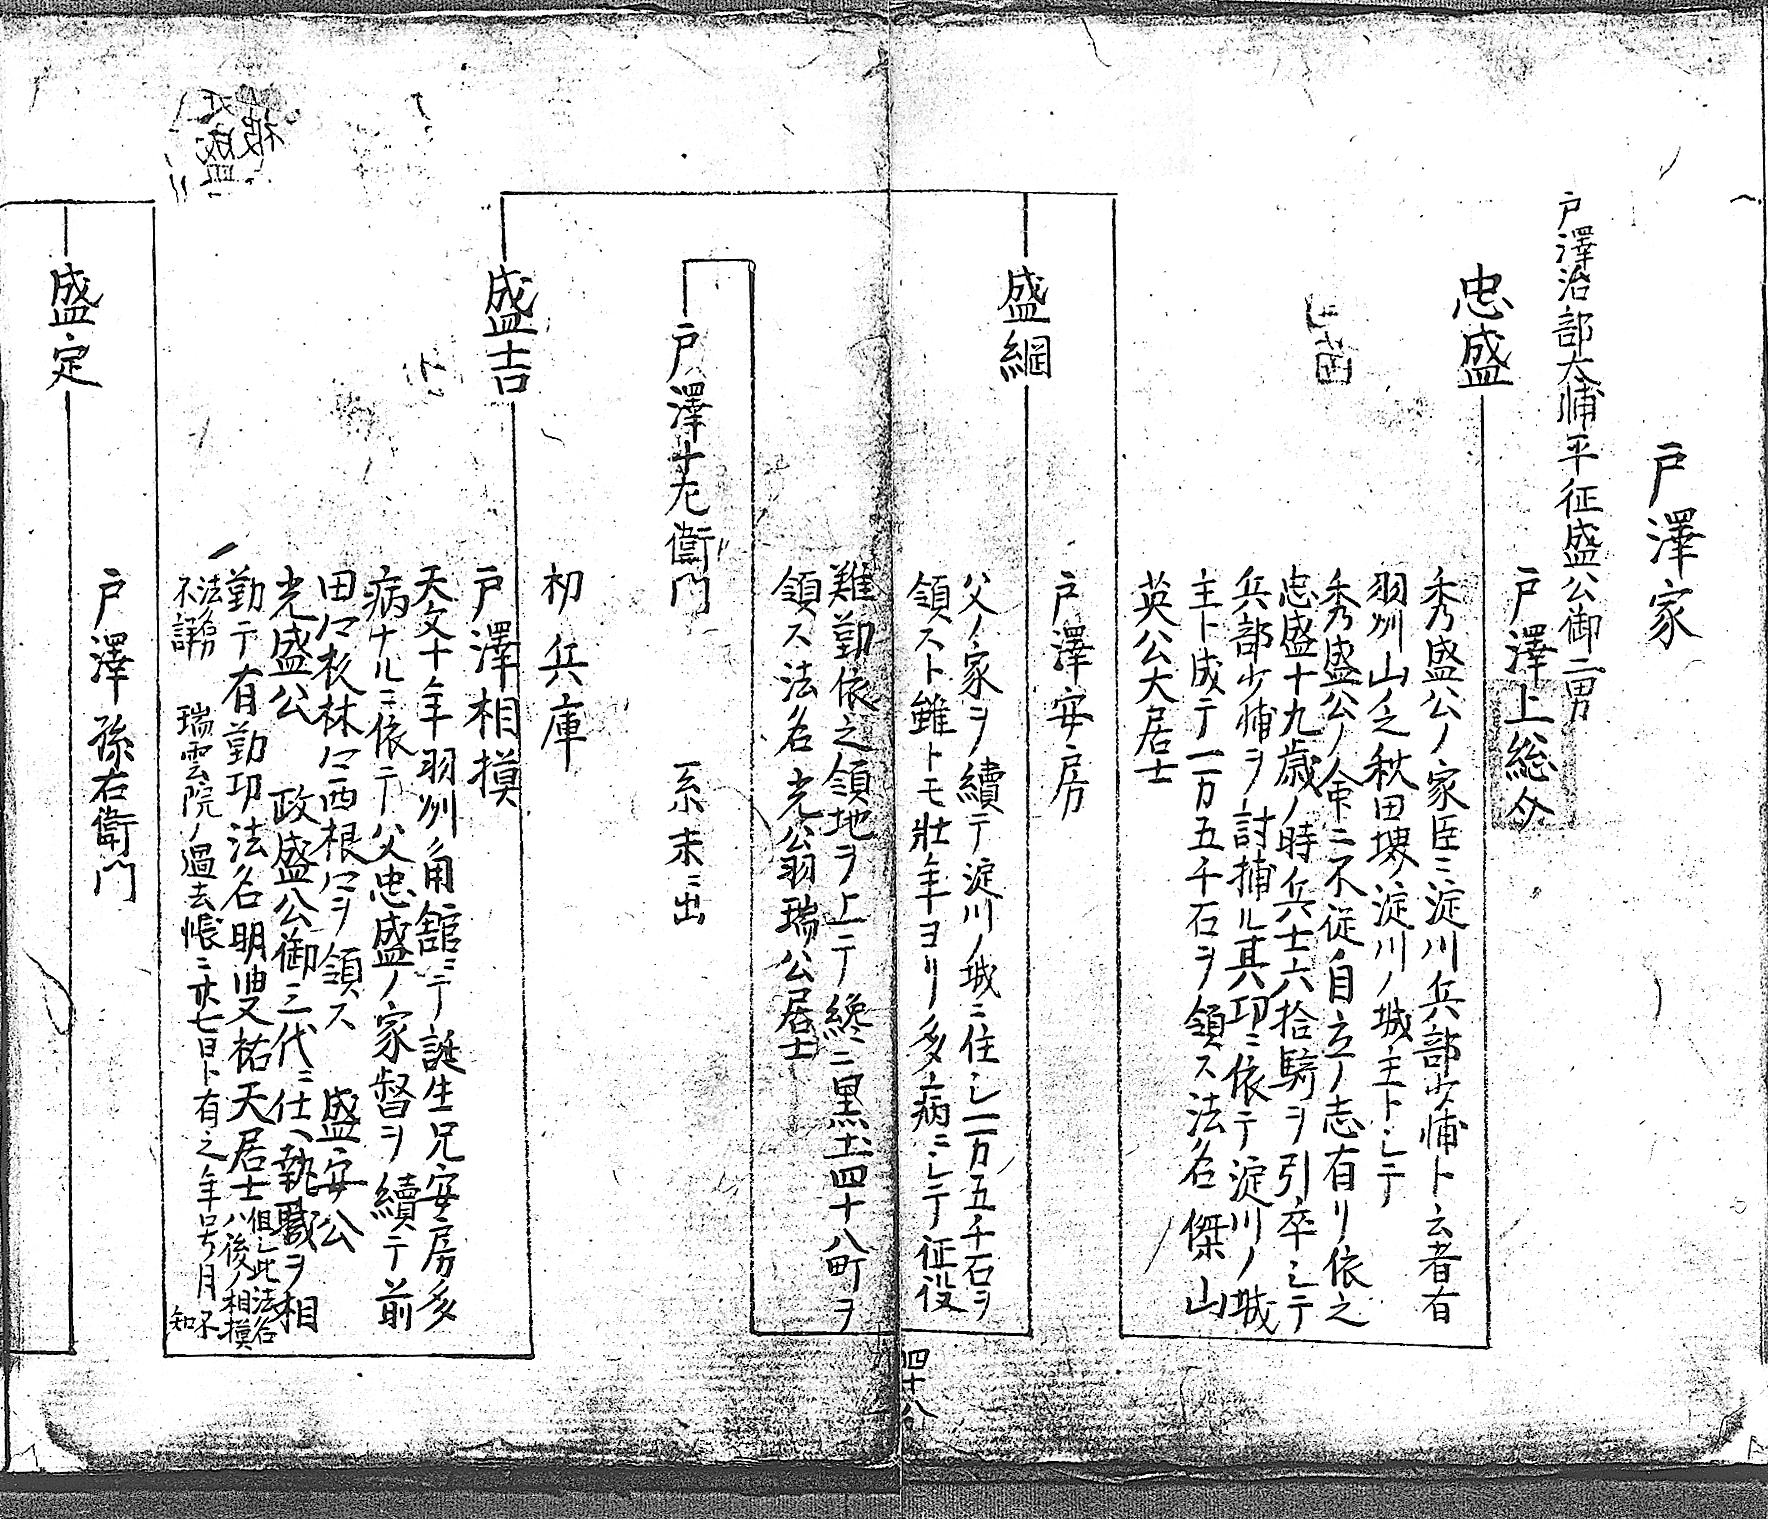 戸澤家
戸澤治部大輔平征盛公御二男
忠盛
戸澤上総介
秀盛公ノ家臣ニ淀川兵部少輔ト云者有
羽州山ノ之秋田堺淀川ノ城主トシテ
秀盛公ノ命ニ不従自立ノ志有リ依之
忠盛十九歳ノ時兵士六拾騎ヲ引卒シテ
兵部少輔ヲ討捕ル其功ニ依テ淀川ノ城
主ト成テ一万五千石ヲ領ス法名傑山
英公大居士
盛綱
戸澤安房
父ノ家ヲ續テ淀川ノ城ニ住シ一万五千石ヲ
領スト雖トモ壮年ヨリ多病ニシテ征役
難勤依之領地ヲ上テ纔ニ黒土四十八町ヲ
領ス法名光公翁瑞公居士
戸澤十左衛門
系末ニ出
盛吉
初兵庫
戸澤相摸
天文十年羽州角舘ニテ誕生兄安房多
病ナルニ依テ父忠盛ノ家督ヲ續テ前
田口杉林口西根口ヲ領ス 盛安公
光盛公 政盛公御三代ニ仕執職ヲ相
勤テ有勤功法名明叟祐天居士
但此法名
ハ後ノ相摸
法名
不詳
瑞雲院ノ過去帳ニ廿七日ト有之年号月不
知
盛定
戸澤孫右衛門
四十八